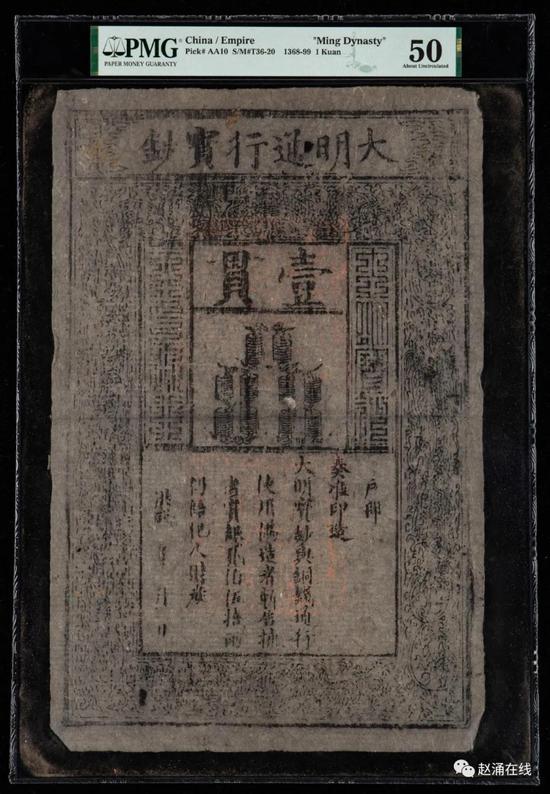 PMG
PAPER MONEY GUARANTY
China / Empire "Ming Dynasty"
Pick# AA10 S/M#T36-20 1368-99 1 Kuan
50
About Uncirculated
大明通行寶鈔
壹貫
戶部
奏准印造
大明寶鈔與銅錢通行
使用偽造者斬告捕
者賞銀貳伯伍拾兩
仍給犯人財產
洪武 年 月 日
赵涌在线